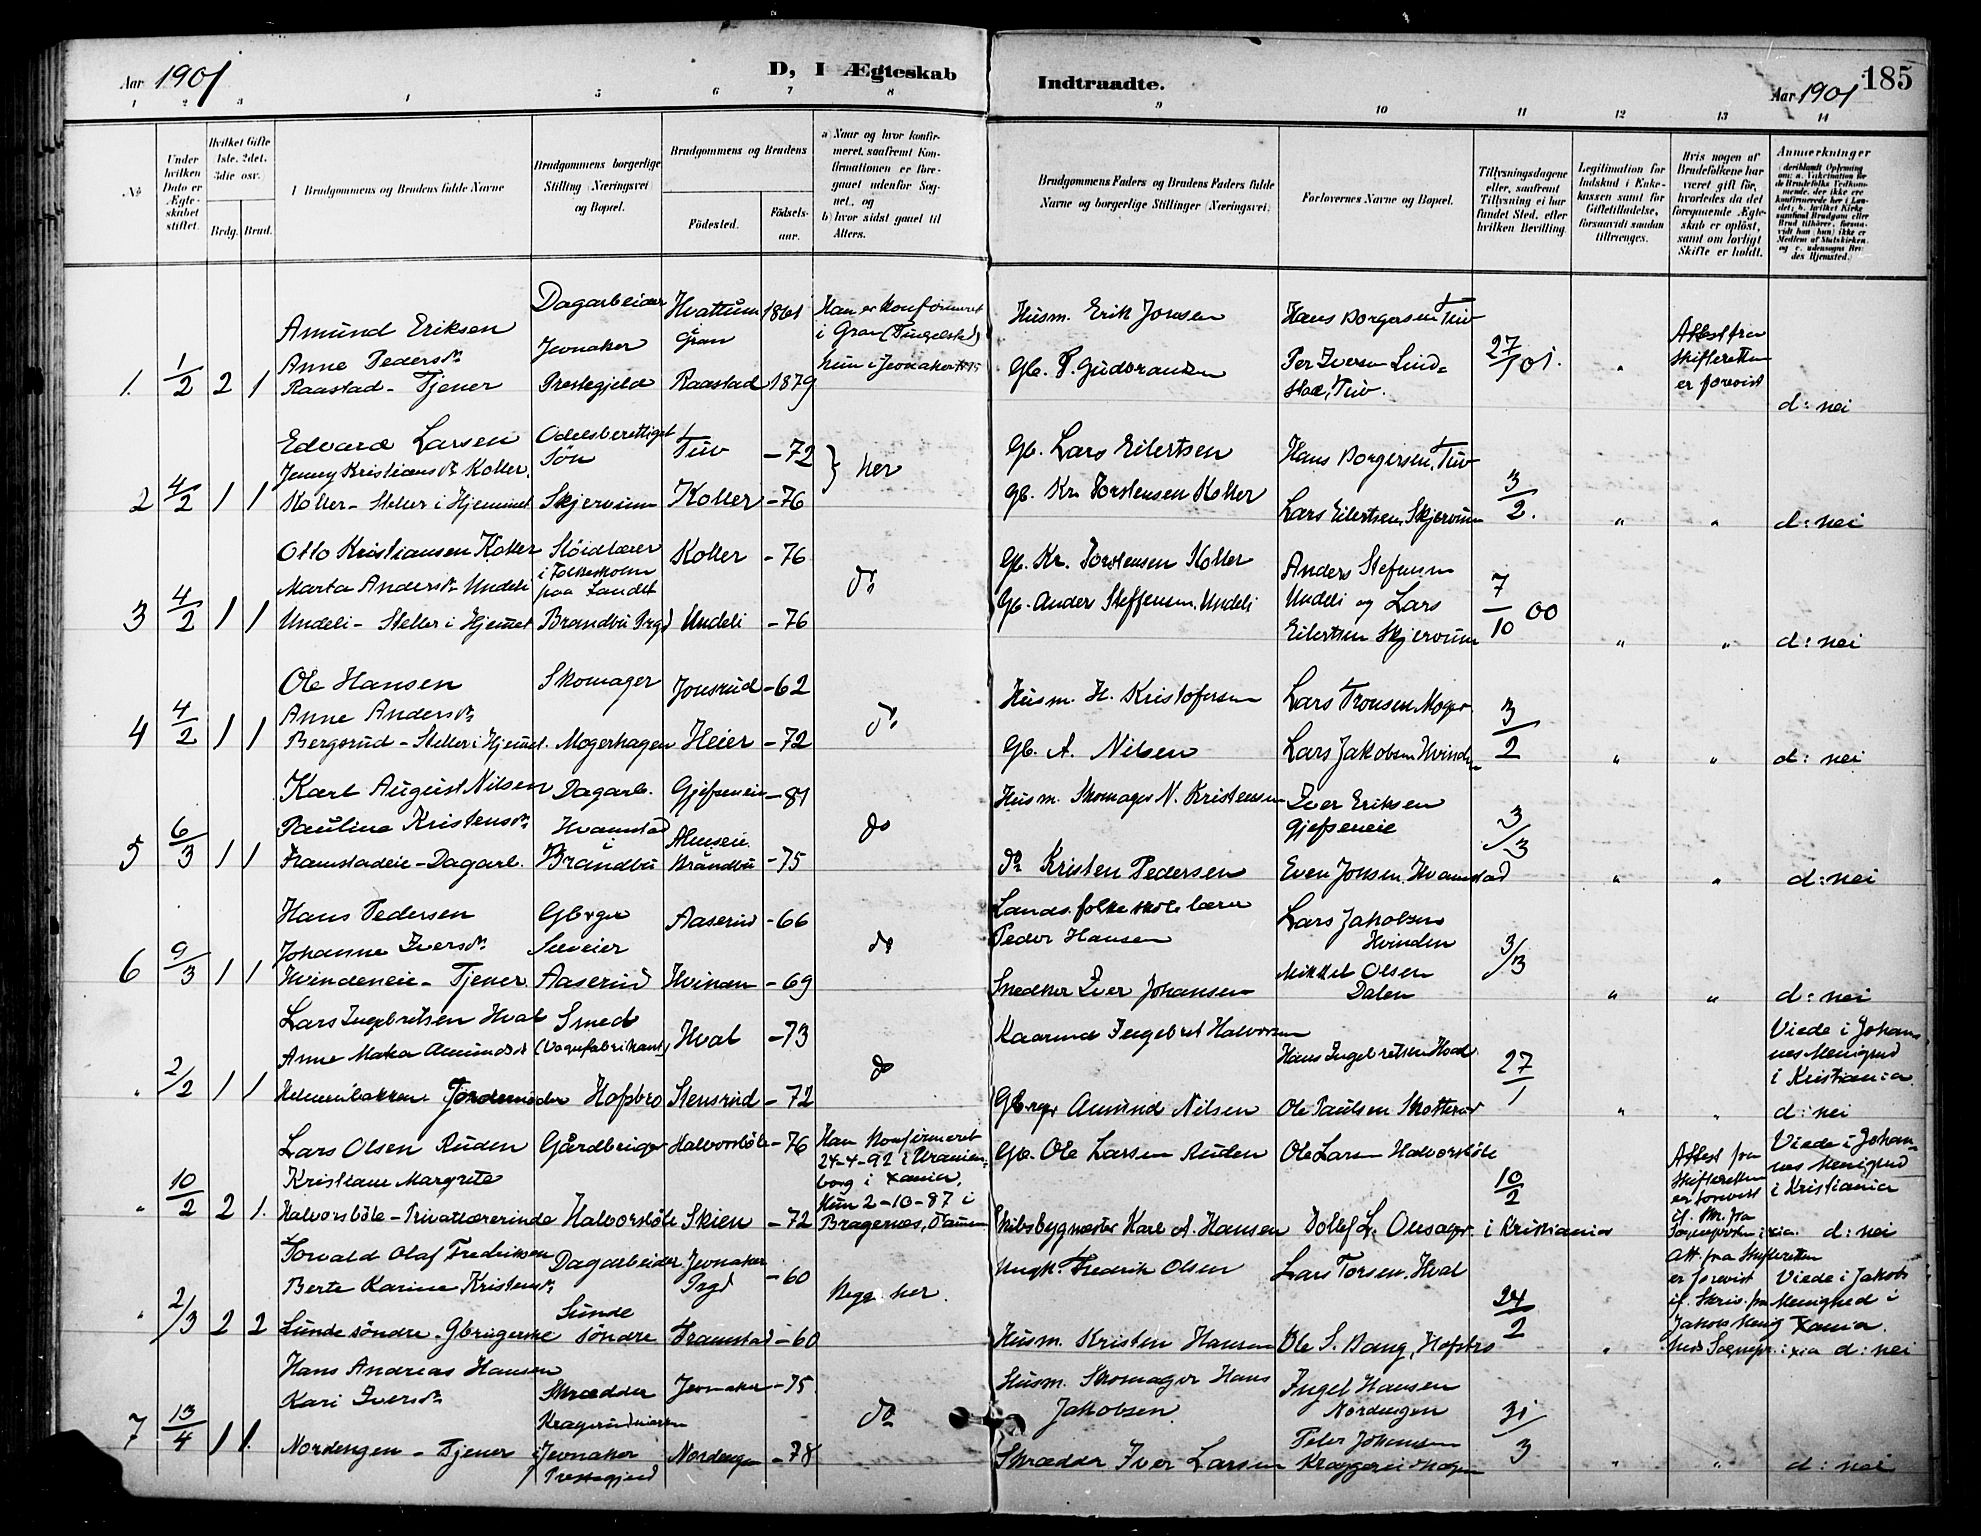 Aar 1901
D, I Ægteskab
Indtraadte.
Aar 1901
185
1 2 3 4 5 6 7 8 9 10 11 12 13 14
No
Under hvilken Dato er Ægteskabet stiftet.
Hvilket Gifte 1ste, 2det, 3die osv.
Brdg. Brud.
Brudgommens og Brudens fulde Navne
Brudgommens borgerlige Stilling (Næringsvei) og Bopæl.
Brudgommens og Brudens
Födested.
Födselsaar.
a) Naar og hvor konfirmeret, saafremt Konfirmationen er foregaaet udenfor Sognet, og
b) hvor sidst gaaet til Alters.
Brudgommens Faders og Brudens Faders fulde Navne og borgerlige Stillinger (Næringsvei).
Forlovernes Navne og Bopæl.
Tillysningsdagene eller, saafremt Tillysning ei har fundet Sted, efter hvilken Bevilling.
Legitimation for Indskud i Enkekassen samt for Giftetilladelse, forsaavidt saadan tiltrænges.
Hvis nogen af Brudefolkene har været gift för, hvorledes da det foregaaende Ægteskab er oplöst, samt om lovligt Skifte er holdt.
Anmærkninger
1. 1/2 2 1
Amund Eriksen Dagarbeider Hvattum Gran 1861 Han er konfirmeret i Gran (Tingelstad)
Anne Pedersdr. Jevnaker hun i Jevnaker
Raastad - Tjener Prestegjeld Raastad 1879
Husm. Erik Jonsen Hans Borgersen Tuv
Gb. P. Gudbrandsen Per Iversen Lindstad, Tuv. 27/1 01. " Attest fra Skifteretten er forevist d: nei
2 4/2 1 1
Edvard Larsen Odelsberettiget Sön Tuv -72 } her
Jenny Kristiansdr. Koller
Koller - Steller i Hjemmet Skjervum Koller -76
Gb. Lars Eilertsen Hans Borgersen, Tuv
Gb. Kr. Torstensen Koller Lars Eilertsen, Skjervum 3/2. " " d: nei
3 4/2 1 1
Otto Kristiansen Koller Slöidlærer i Folkeskolen paa Landet Koller -76 do
Marta Andersdr. Undeli
Undeli - Steller i Hjemmet Brandbu Prgd Undeli -76
Gb. Kr. Torstensen Koller Anders Stefensen
Gb. Ander Steffensen, Undeli Undeli og Lars Eilertsen Skjervum 7/10 00 " " d: nei
4 4/2 1 1
Ole Hansen Skomager Jonsrud -62 do
Anne Andersdr.
Bergsrud - Steller i Hjemmet. Mogerhagen Heier -72
Husm. H. Kristofersen Lars Tronsen, Moger
Gb. A. Nilsen Lars Jakobsen Hvinden 3/2 " " d: nei
5 6/3 1 1
Karl August Nilsen Dagarb. Gjefseneie -81 do
Pauline Kristensdr. Hvamstad i
Framstadeie - Dagarb. Brandbu Brandbu -75
Husm. Skomager N. Kristensen Iver Eriksen Gjefseneie
do Kristen Pedersen Even Jonsen, Hvamstad 3/3 " " d: nei
6 9/3 1 1
Hans Pedersen Gbrger Aaserud -66 do
Johanne Iversdr. Selveier
Hvindeneie - Tjener Aaserud Hvinden -69
Lands. folkeskolelærer Peder Hansen Lars Jakobsen Hvinden
Snedker Iver Johansen Mikkel Olsen Dalen 3/3 " " d: nei
" 2/2 1 1
Lars Ingebretsen Hval Smed Hval -73 do
(Vognfabrikant)
Jordemoder Hofsbro Stensrud -72
Kaarmd Ingebret Halvorsen Hans Ingebretsen Hval
Gbrger Amund Nilsen Ole Paulsen 27/1 " " Viede i Johannes Menighed i Kristiania. d: nei
" 10/2 2 1.
Lars Olsen Ruden Gårdbruger Halvorsböle -76 Han konfirmeret 24-4-92 i Uranienborg i Xania.
Kristiane Margrete Hun 2-10-87 i
Halvorsböle - Privatlærerinde Halvorsböle Skien -72 Bragernes,
Gb. Ole Larsen Ruden Ole Larsen Halvorsböle
Skibsbygmester Karl A. Hansen i Kristiania 10/2 Attest fra Skifteretten er forevist Viede i Johannes Menighed i Kristiania d: nei
" 2/3 2 2
Torvald Olaf Fredriksen Dagarbeider Jevnaker Prgd -60 Begge her.
Berte Karine Kristensdr. Sunde
Sunde söndre - Gbrugerske söndre Framstad -60
Ungk. Fredrik Olsen Lars Torsen, Hval
Husm. Kristen Hansen Ole S. Bang, Hofsbro 24/2 " Att. fra Skifteretten er forevist Viede i Jakobs Menighed i Xania. d: nei
7 13/4 1 1.
Hans Andreas Hansen Skrædder Jevnaker -75 do
Kari Iversdr.
Nordengen - Tjener i Jevnaker Prestegjeld Nordengen -78
Husm. Skomager Hans Jakobsen. Ingel Hansen Nordengen
Skrædder Iver Larsen Peter Johansen 31/3 " " d: nei